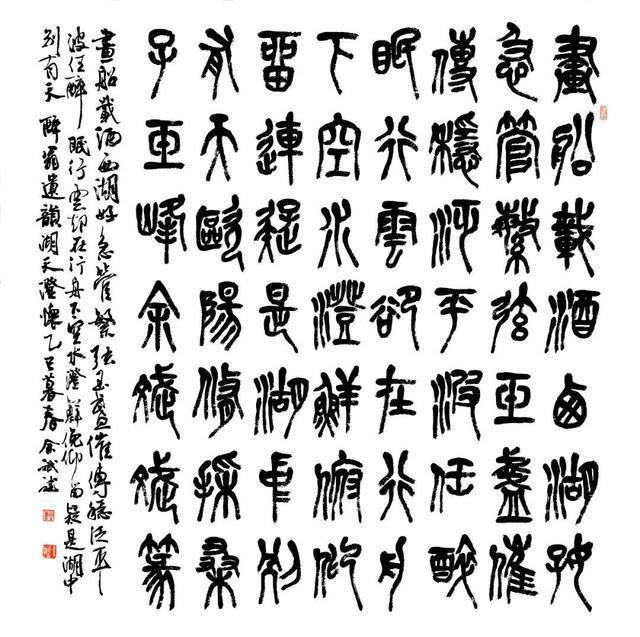 畫船載酒西湖好
急管繁弦玉盞催
傳穩泛平波任醉
眠行雲卻在行舟
下空水澄鮮俯仰
留連疑是湖中別
有天歐陽修採桑
子玉峰余篆
畫船載酒西湖好急管繁弦玉盞催傳穩泛平
波任醉眠行雲却在行舟下空水澄鮮俛仰留疑是湖中
别有天 醉翁遺韻湖天澄懷乙巳暮春余